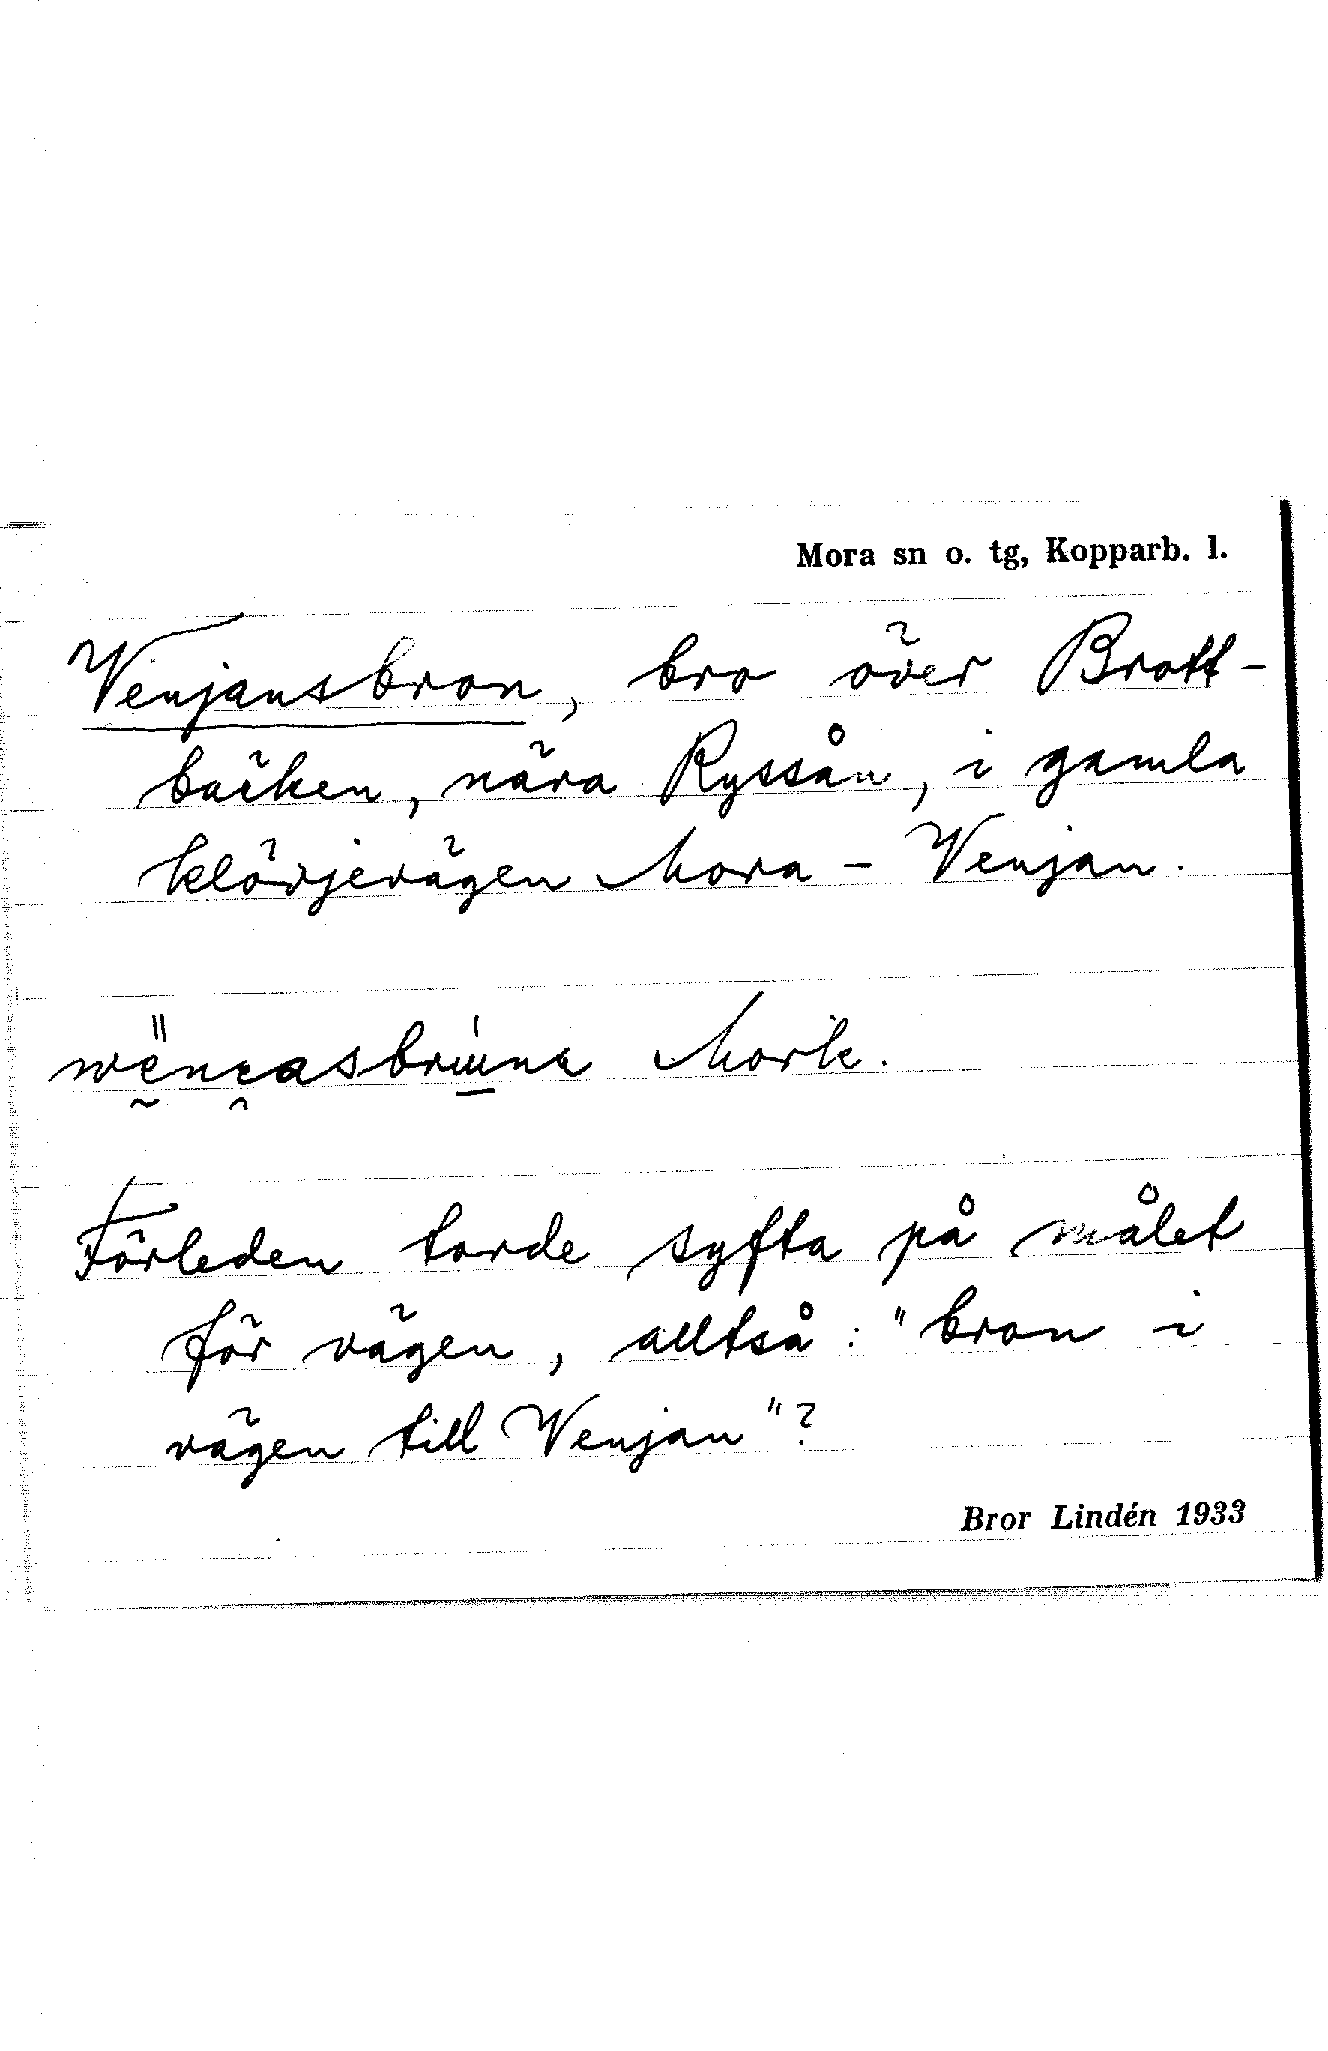 Mora sn o. tg, Kopparb. l.
Venjansbron, bro över Brott-
bäcken, nära Ryssån, i gamla
klövjevägen Mora - Venjan.
Mork.
Förleden torde syfta på målet
för vägen, alltså: "bron i
vägen till Venjan"?
Bror Lindén 1933